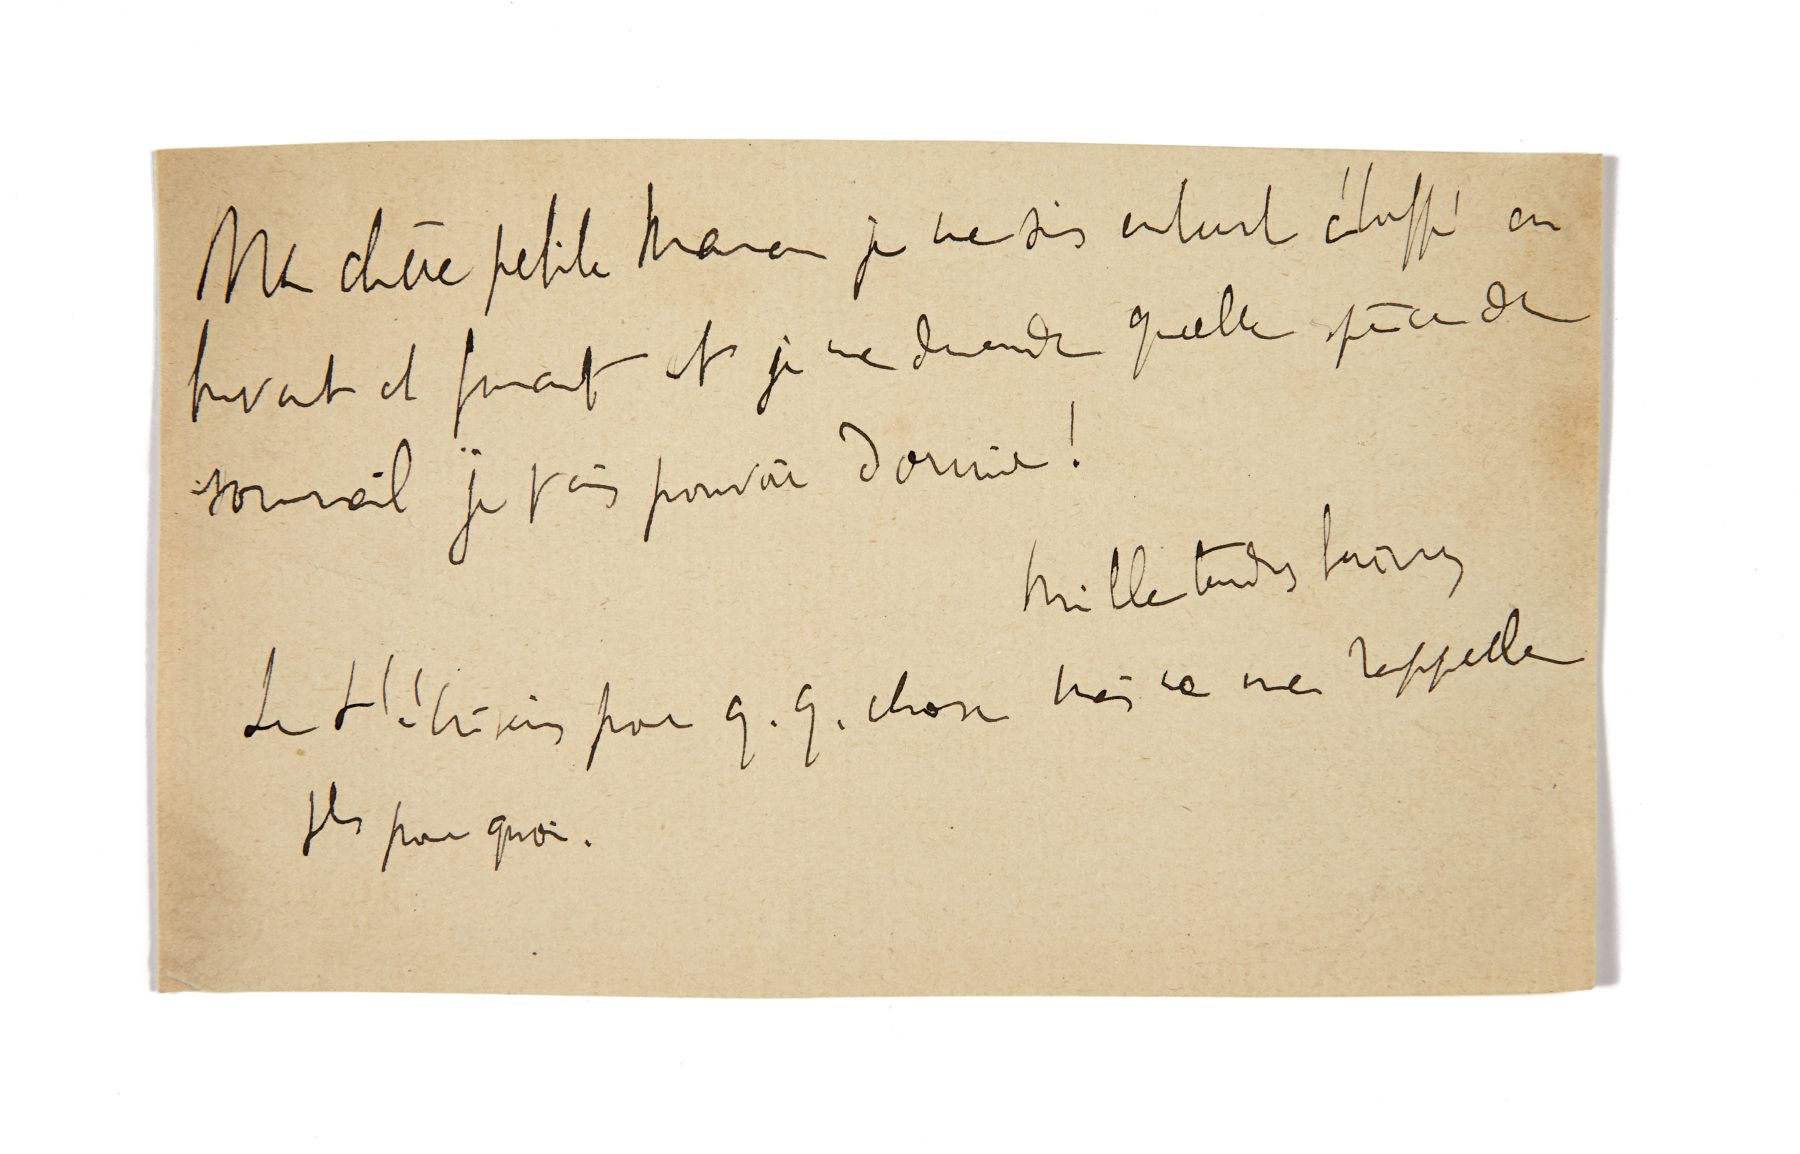 Ma chère petite Maman je me suis étouffé en
buvant et fumant et je me demande quelle espèce de
sommeil je vais pouvoir dormir !
Mille tendres baisers
Je pour q. q. chose mais ne me rappelle
plus pour quoi.